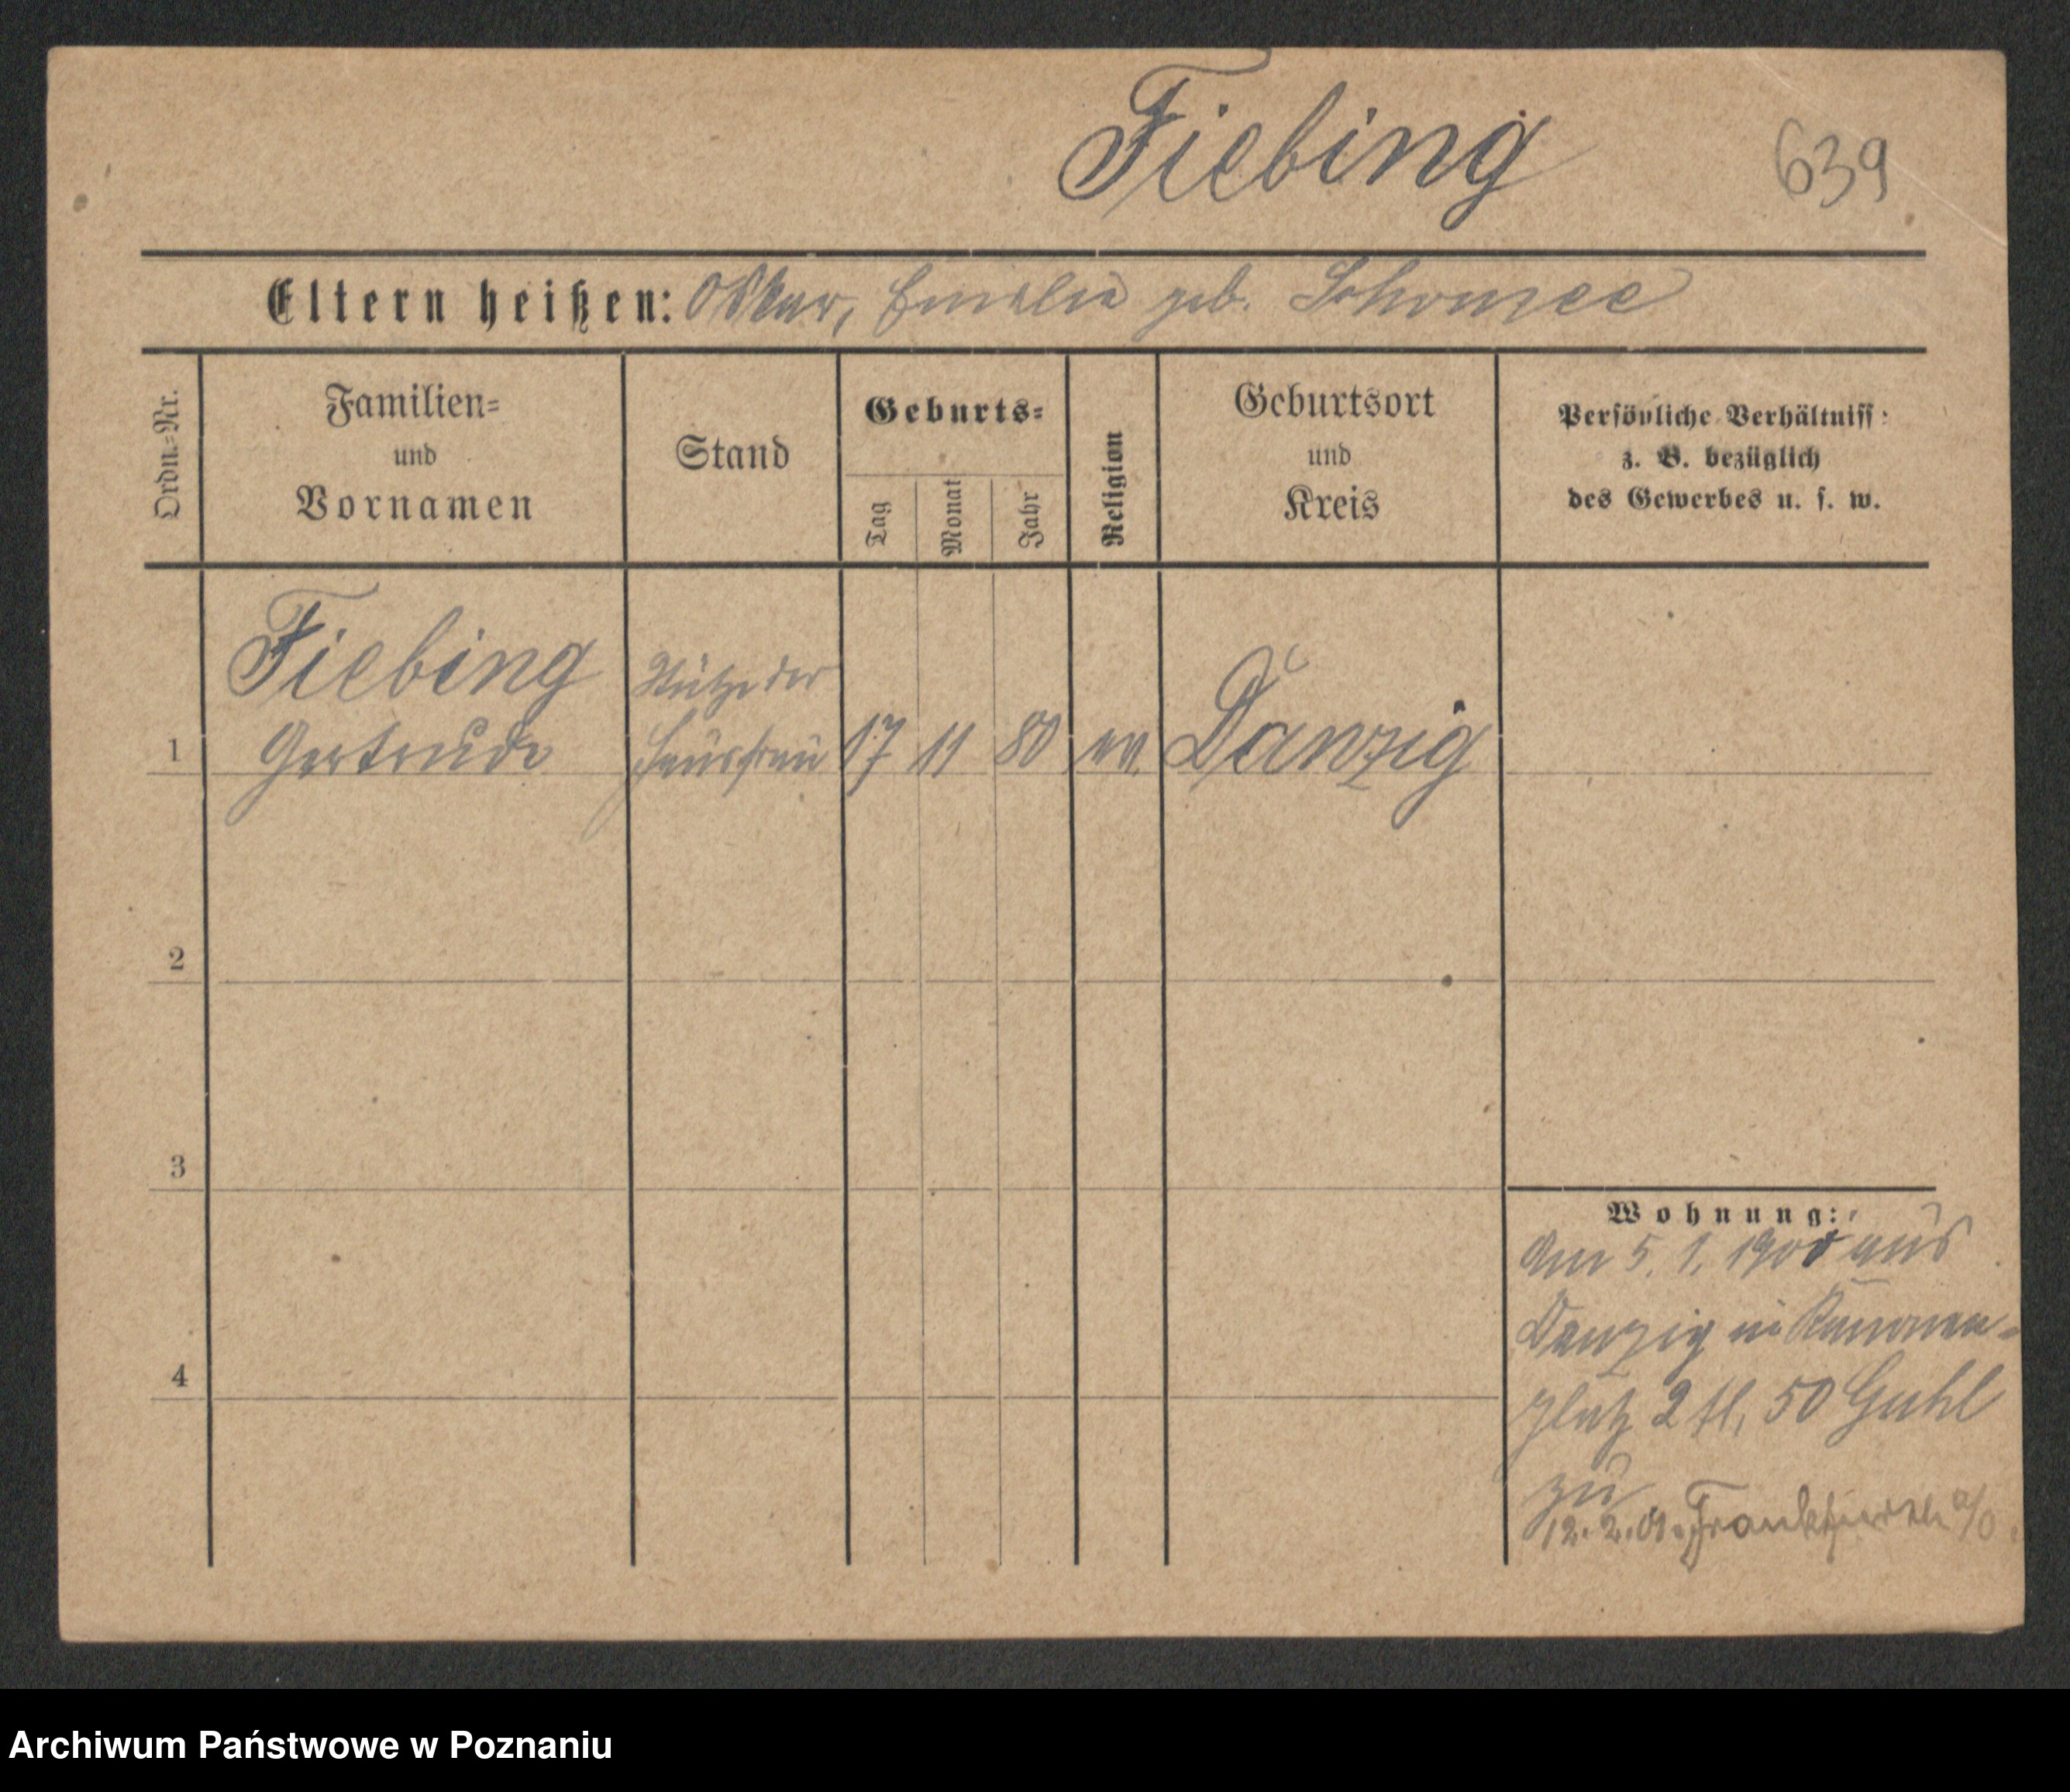 Fiebing
639
Eltern heißen: Oskar, Emilie geb. Schomsee
Ordn.=Nr.
Familien=
und
Vornamen
Stand
Geburts=
Tag
Monat
Jahr
Religion
Geburtsort
und
Kreis
Persönliche Verhältniss
z. B. bezüglich
des Gewerbes u. s. w.
Fiebing
Gertrude
Stütze der
Hausfrau
1
17 11 80 ev. Danzig
2
3
4
Wohnung:
Am 5. 1. 1900 aus
Danzig in Kanonen-
platz 2 II, 50 Guhl
zu
12.2.01. Frankfurth a/O
Archiwum Państwowe w Poznaniu